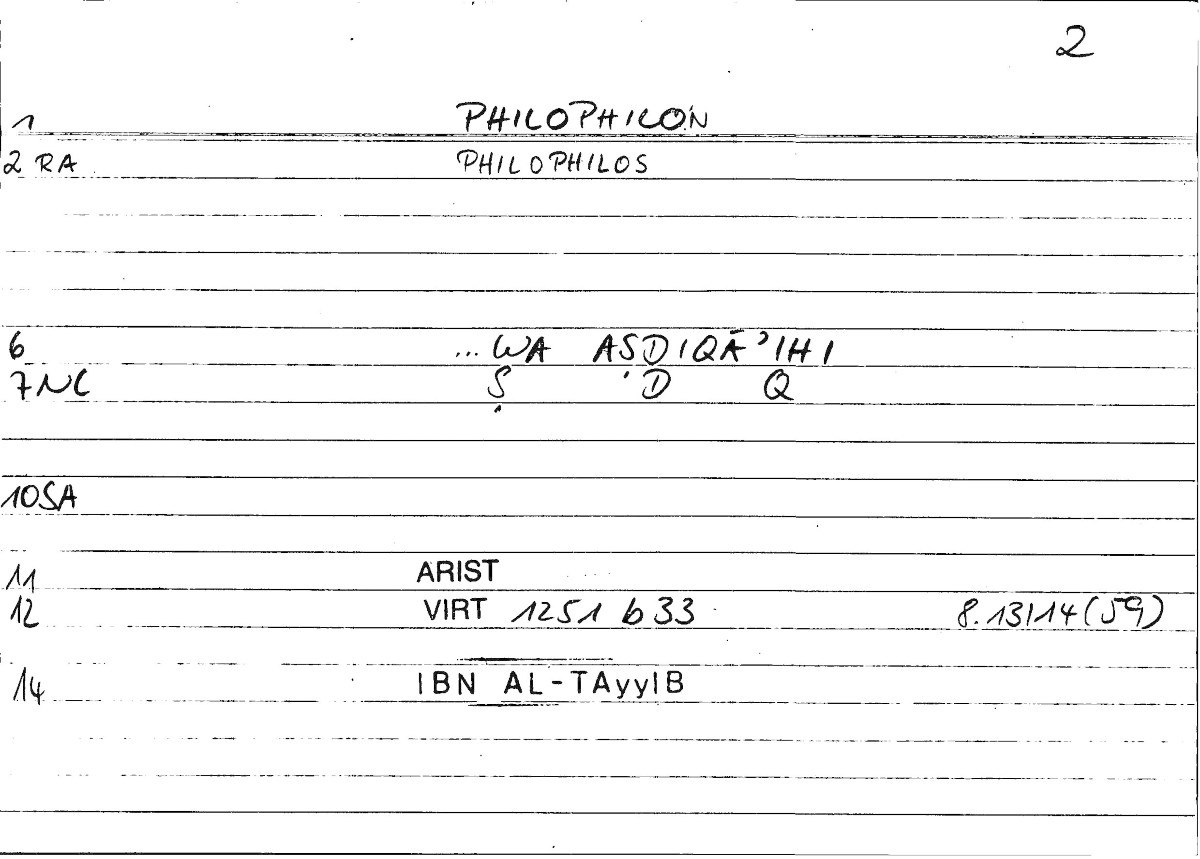 2
1 PHILOPHILON
2 RA PHILOPHILOS
6 ... WA AṢDIQĀʾIHI
7 NC Ṣ D Q
10 SA
11 ARIST
12 VIRT 1251 b 33 8.13/14 (59)
14 IBN AL-TAyyIB